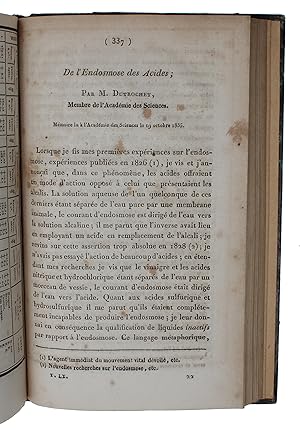 ( 337 )
De l'Endosmose des Acides;
Par M. Dutrochet,
Membre de l'Académie des Sciences.
Mémoire lu à l'Académie des Sciences le 19 octobre 1835.
Lorsque je fis mes premières expériences sur l'endos-
mose, expériences publiées en 1826 (1), je vis et j'an-
nonçai que, dans ce phénomène, les acides offraient
un mode d'action opposé à celui que présentaient les
alcalis. La solution aqueuse de l'un quelconque de ces
derniers étant séparée de l'eau pure par une membrane
animale, le courant d'endosmose est dirigé de l'eau vers
la solution alcaline; il me parut que l'inverse avait lieu
en employant un acide en remplacement de l'alcali; je
revins sur cette assertion trop absolue en 1828 (2); je
n'avais pas essayé l'action de beaucoup d'acides; en éten-
dant mes recherches je vis que le vinaigre et les acides
nitrique et hydrochlorique étant séparés de l'eau par un
morceau de vessie, le courant d'endosmose était dirigé
de l'eau vers l'acide. Quant aux acides sulfurique et
hydrosulfurique il me parut qu'ils étaient complète-
ment incapables de produire l'endosmose; je leur don-
nai en conséquence la qualification de liquides inactifs
par rapport à l'endosmose. Ce langage métaphorique,
(1) L'agent immédiat du mouvement vital dévoilé, etc.
(2) Nouvelles recherches sur l'endosmose, etc.
T. LX. 22